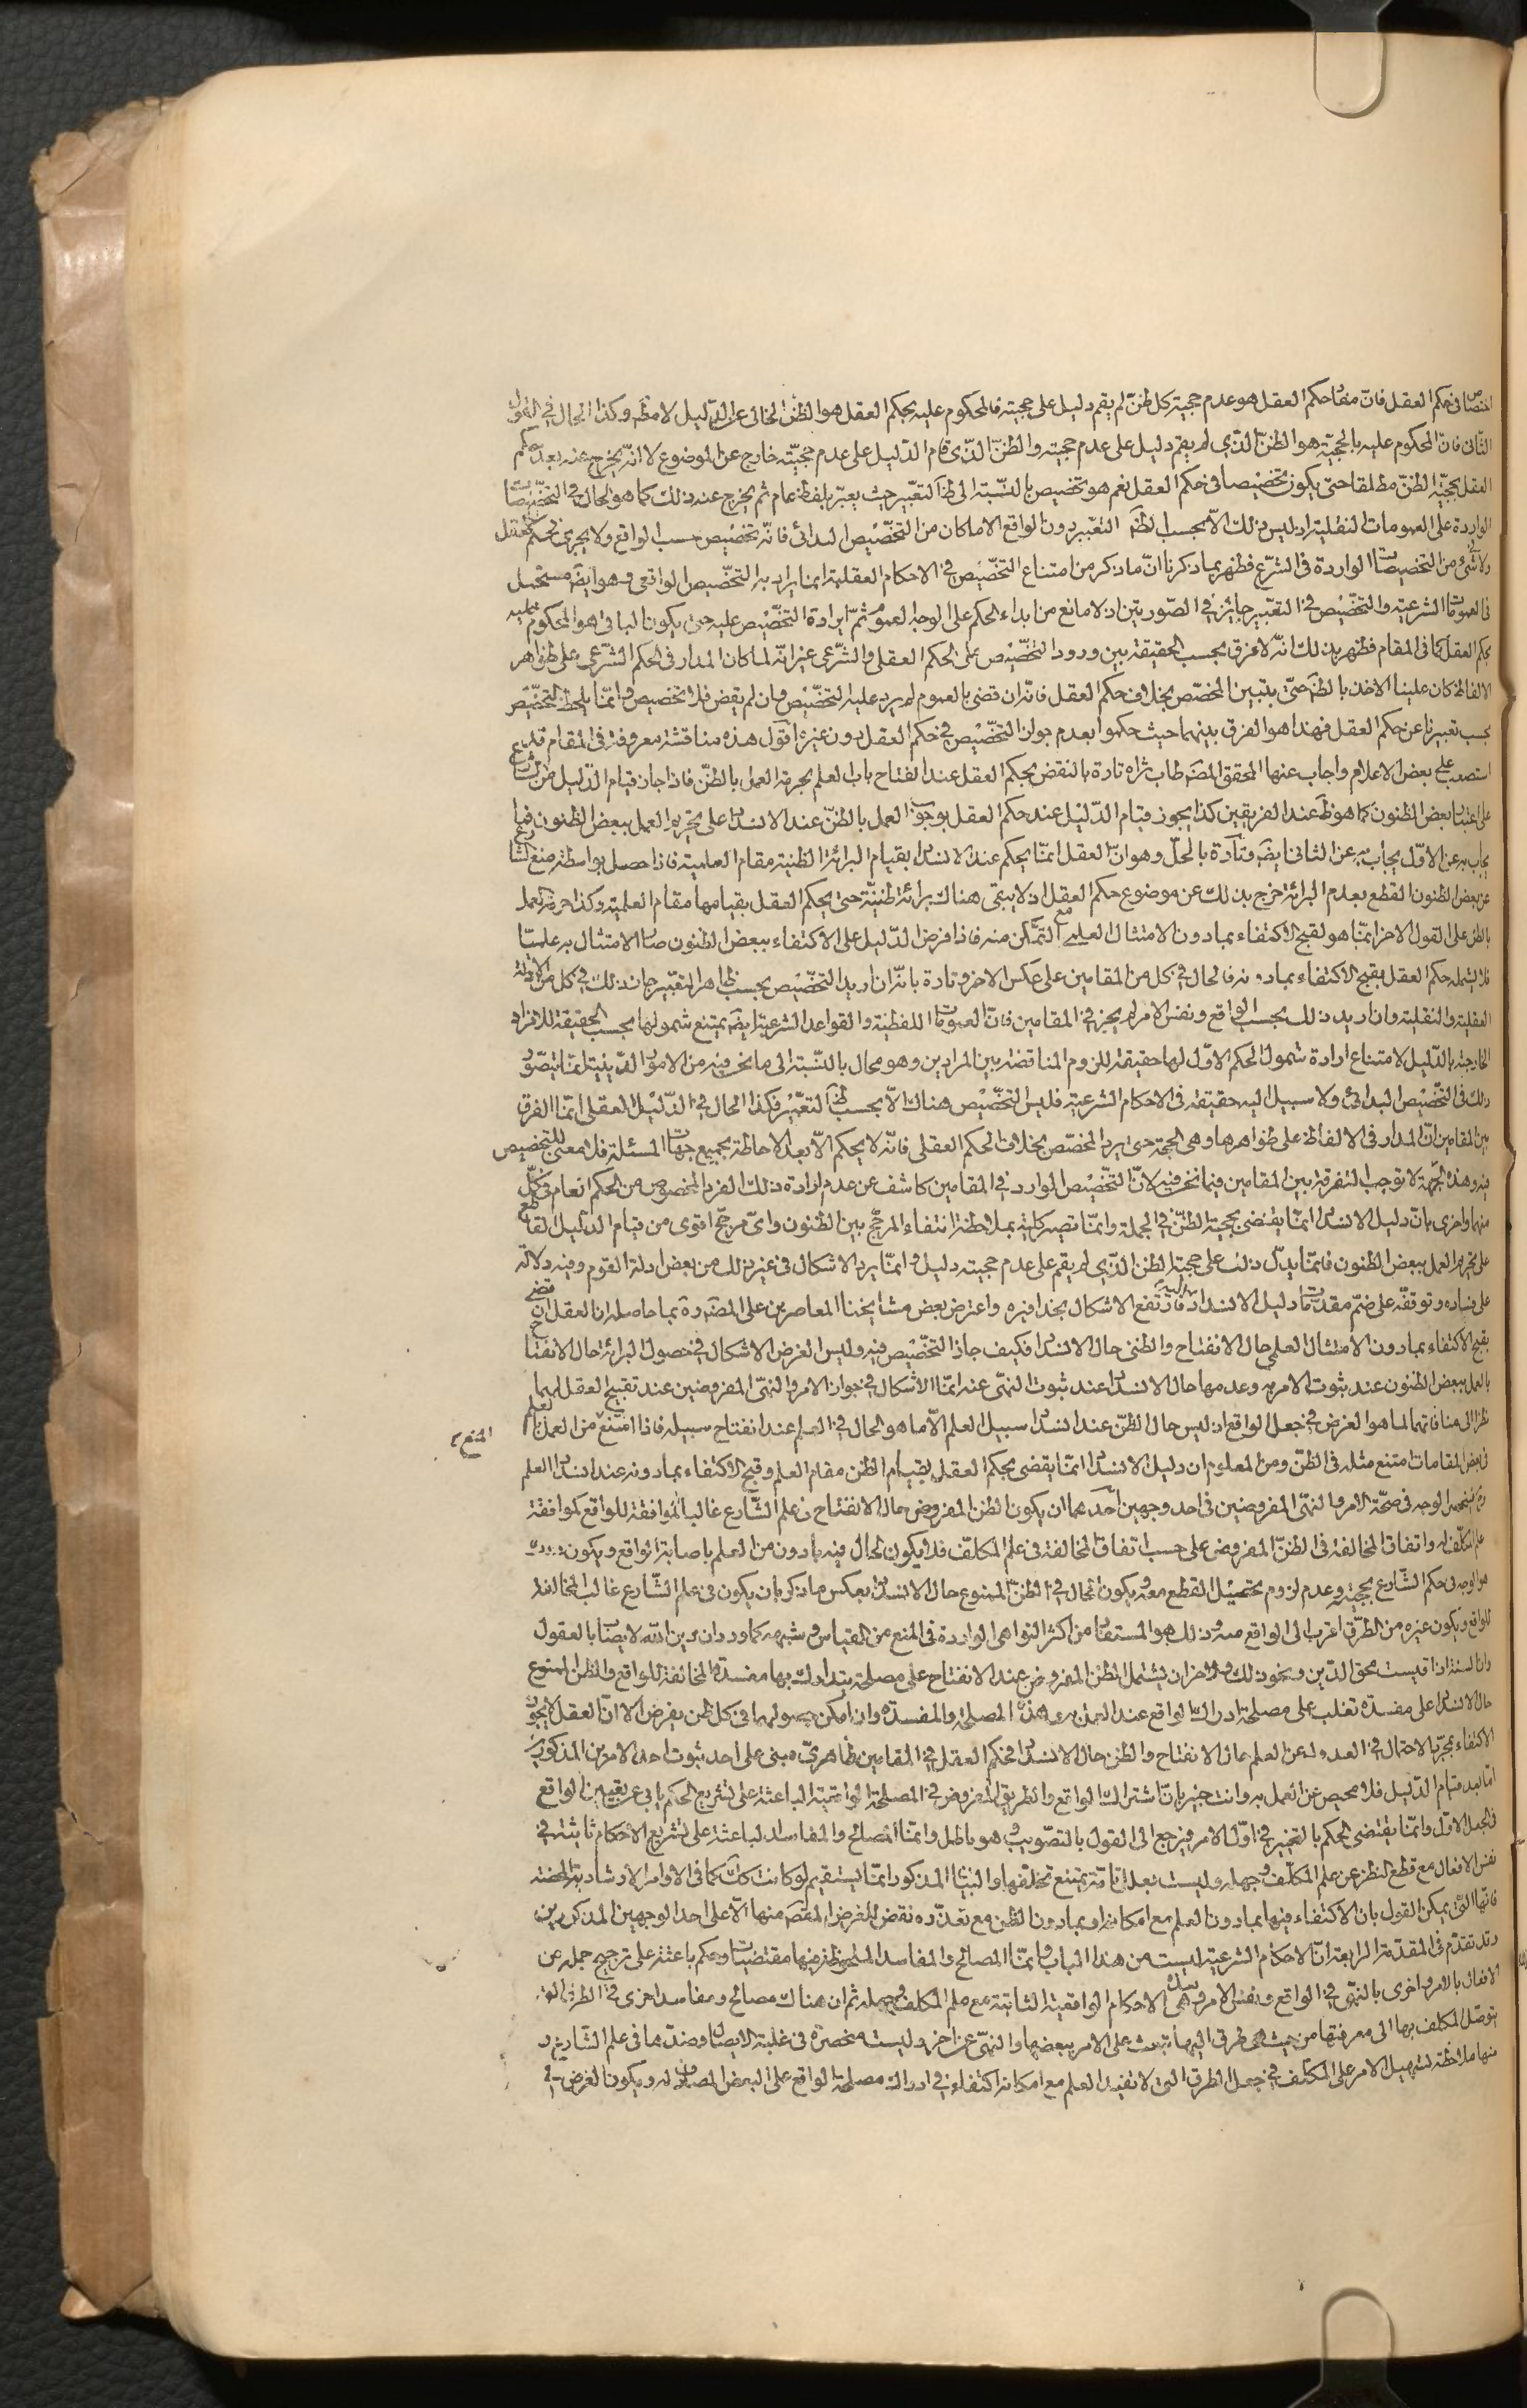 اختصاصا فى حكم العقل فان مفاد حكم العقل هو عدم حجية كل ظن لم يقم دليل على حجيته فالمحكوم عليه بحكم العقل هو الظن الخالى عن الدليل لا مطم وكذا الحال فى القول
الثانى فان المحكوم عليه بالحجية هو الظن الذى لم يقم دليل على عدم حجيته والظن الذى قام الدليل على عدم حجيته خارج عن الموضوع لا انه يخرج عنه بعد حكم
العقل بحجية الظن مطلقا حتى يكون تخصيصا فى حكم العقل نعم هو تخصيص بالنسبة الى ظ التعبير حيث يعبر بلفظ عام ثم يخرج عنه ذلك كما هو الحال فى التخصيصات
الواردة على العمومات النقلية اذ ليس ذلك الا بحسب ظم التعبير دون الواقع الا ما كان من التخصيص البدائى فانه تخصيص حسب الواقع ولا يجرى فى حكم العقل
ولا شئ من التخصيصات الواردة فى الشرع فظهر بما ذكرنا ان ما ذكر من امتناع التخصيص فى الاحكام العقلية انما يراد به التخصيص الواقعى وهو ايضم مستحيل
فى العمومات الشرعية والتخصيص فى التعبير جايز فى الصورتين اذ لا مانع من ابداء الحكم على الوجه العموم ثم ايرادة التخصيص عليه حتى يكون الباقى هو المحكوم عليه
بحكم العقل كما فى المقام فظهر بذلك انه لا فرق بحسب الحقيقة بين ورود التخصيص على الحكم العقلى والشرعى غير انه لما كان المدار فى الحكم الشرعى على ظواهر
الالفاظ كان علينا الاخذ بالظم حتى يتبين المخصص بخلاف حكم العقل فانه ان قضى بالعموم لم يرد عليه التخصيص وان لم يقض فلا تخصيص وانما يلحظ التخصيص
بحسب تعبيرنا عن حكم العقل فهذا هو الفرق بينهما حيث حكموا بعدم جواز التخصيص فى حكم العقل دون غيره اقول هذه مناقشة معروفة فى المقام قد
استصعب على بعض الاعلام واجاب عنها المحقق المضم طاب ثراه تارة بالنقض بحكم العقل عند انفتاح باب العلم بحرمة العمل بالظن فاذا جاز قيام الدليل من الشارع
على اعتبار بعض الظنون كما هو ظم عند الفريقين كذا يجوز قيام الدليل عند حكم العقل بوجوب العمل بالظن عند الانسداد على تحريم العمل ببعض الظنون فيما
يجاب به عن الاول يجاب به عن الثانى ايضم وتارة بالحل وهو ان العقل انما يحكم عند الانسداد بقيام البرائة الظنية مقام العلمية فاذا حصل بواسطة منع الشارع
عن بعض الظنون القطع بعدم البرائة خرج بذلك عن موضوع حكم العقل اذ لا يبقى هناك برائة ظنية حتى يحكم العقل بقيامها مقام العلمية وكذا حرمة العمل
بالظن على القول الاخر انما هو لقبح الاكتفاء بما دون الامتثال العلمى مع التمكن منه فاذا فرض الدليل على الاكتفاء ببعض الظنون صار الامتثال به علميا
فلا يشمله حكم العقل بقبح الاكتفاء بما دونه فالحال فى كل من المقامين على عكس الاخر وتارة بانه ان اريد التخصيص بحسب ظاهر التعبير جاز ذلك فى كل من الادلة
العقلية والنقلية وان اريد ذلك بحسب الواقع ونفس الامر لم يجز فى المقامين فان العمومات اللفظية والقواعد الشرعية ايضم يمتنع شمولها بحسب الحقيقة للافراد
الخارجة بالدليل لامتناع ارادة شمول الحكم الاول لها حقيقة للزوم المناقضة بين المرادين وهو محال بالنسبة الى ما نحن فيه من الامور الدينية انما يتصور
ذلك فى التخصيص البدائى ولا سبيل اليه حقيقة فى الاحكام الشرعية فليس التخصيص هناك الا بحسب ظم التعبير فكذا الحال فى الدليل العقلى انما الفرق
بين المقامين ان المدار فى الالفاظ على ظواهرها وهى الحجة حتى يرد المخصص بخلاف الحكم العقلى فانه لا يحكم الا بعد الاحاطة بجميع جهات المسئلة فلا معنى للتخصيص
فيه وهذه الجهة لا توجب التفرقة بين المقامين فيما نحن فيه لان التخصيص الوارد فى المقامين كاشف عن عدم ارادة ذلك الفرد المخصوص من الحكم العام فى كل
منهما واخرى بان دليل الانسداد انما يقتضى بحجية الظن فى الجملة وانما تصير كلية بملاحظة انتفاء المرجح بين الظنون واى مرجح اقوى من قيام الدليل القاطع
على تحريم العمل ببعض الظنون فانما يدل ذلك على حجية الظن الذى لم يقم على عدم حجيته دليل وانما يرد الاشكال فى غير ذلك من بعض ادلة القوم وفيه دلالة
على فساده وتوقفه على ضم مقدمات دليل الانسداد فاذن يرتفع الاشكال بحذافيره واعترض بعض مشايخنا المعاصرين على المضم ره بما حاصله ان العقل ان قضى
بقبح الاكتفاء بما دون الامتثال العلمى حال الانفتاح والظنى حال الانسداد فكيف جاز التخصيص فيه وليس الغرض الاشكال فى حصول البرائة حال الانفتاح
بالعمل ببعض الظنون عند ثبوت الامر به وعدمها حال الانسداد عند ثبوت النهى عنه انما الاشكال فى جواز الامر والنهى المفروضين عند تقبيح العقل لهما
نظرا الى منافاتهما لما هو الغرض فى جعل الواقع اذ ليس حال الظن عند انسداد سبيل العلم الا ما هو الحال فى العلم عند انفتاح سبيله فاذا امتنع المنع من العمل بالعلم
فى بعض المقامات امتنع مثله فى الظن ومن المعلوم ان دليل الانسداد انما يقضى بحكم العقل بقيام الظن مقام العلم وقبح الاكتفاء بما دونه عند انسداد العلم
الوجه فى صحة الامر والنهى المفروضين فى احد وجهين احدهما ان يكون الظن المفروض حال الانفتاح فى علم الشارع غالب الموافقة للواقع كموافقة
علم المكلف له واتفاق المخالفة فى الظن المفروض على حسب اتفاق المخالفة فى علم المكلف فلا يكون الحال فيه بادون من العلم باصابة الواقع ويكون
هو الوجه فى حكم الشارع بحجيته وعدم لزوم تحصيل القطع معه ويكون الحال فى الظن الممنوع حال الانسداد بعكس ما ذكر بان يكون فى علم الشارع غالب المخالفة
للواقع ويكون غيره من الطرق اقرب الى الواقع منه وذلك هو المستفاد من اكثر النواهى الواردة فى المنع من القياس وشبهه كما ورد ان دين الله لا يصاب بالعقول
وان السنة اذا قيست محق الدين ونحو ذلك والاخر ان يشتمل الظن المفروض عند الانفتاح على مصلحة يتدارك بها مفسدة المخالفة للواقع والظن الممنوع
حال الانسداد على مفسدة تغلب على مصلحة ادراك الواقع عند العمل به وهذه المصلحة والمفسدة وان امكن حصولهما فى كل ظن يفرض الا ان العقل لا يجوز
الاكتفاء بمجرد الاحتمال فى العدول عن العلم حال الانفتاح والظن حال الانسداد فحكم العقل فى المقامين ظاهرى مبنى على احد ثبوت احد الامرين المذكورين
اما بعد قيام الدليل فلا محيص عن العمل به وانت خبير بان اشتراك الواقع والطريق المفروض فى المصلحة الواقعية الباعثة على تشريع الحكم ياتى عن تعيين الواقع
فى الجعل الاول وانما يقتضى الحكم بالتخيير فى اول الامر فيرجع الى القول بالتصويب وهو باطل وانما المصالح والمفاسد الباعثة على تشريع الاحكام ثابتة فى
نفس الافعال مع قطع النظر عن علم المكلف وجهله وليست بعلل تامة يمتنع تخلفها والبناء المذكور انما يستقيم لو كانت كك كما فى الاوامر الارشادية المحضة
فانها التى يمكن القول بان الاكتفاء فيها بما دون العلم مع امكانه او بما دون الظن مع تعذره نقض للغرض المقصم منها الا على احد الوجهين المذكورين
وقد تقدم فى المقدمة الرابعة ان الاحكام الشرعية ليست من هذا الباب وانما المصالح والمفاسد الملحوظة فيها مقتضيات وحكم باعثة على ترجيح جملة من
الافعال بالامر واخرى بالنهى فى الواقع ونفس الامر وتلك هى الاحكام الواقعية الثابتة مع علم المكلف وجهله ثم ان هناك مصالح ومفاسد اخرى فى الطرق التى
يتوصل المكلف بها الى معرفتها من حيث هى طرق اليها تبعث على الامر ببعضها والنهى عن اخر وليست منحصرة فى غلبة الايصال وضدها فى علم الشارع و
منها ملاحظة تسهيل الامر على المكلف فى جعل الطرق التى لا تفيد العلم مع امكانه اكتفاء فى ادراك مصلحة الواقع على البعض المصادف له ويكون الغرض فى